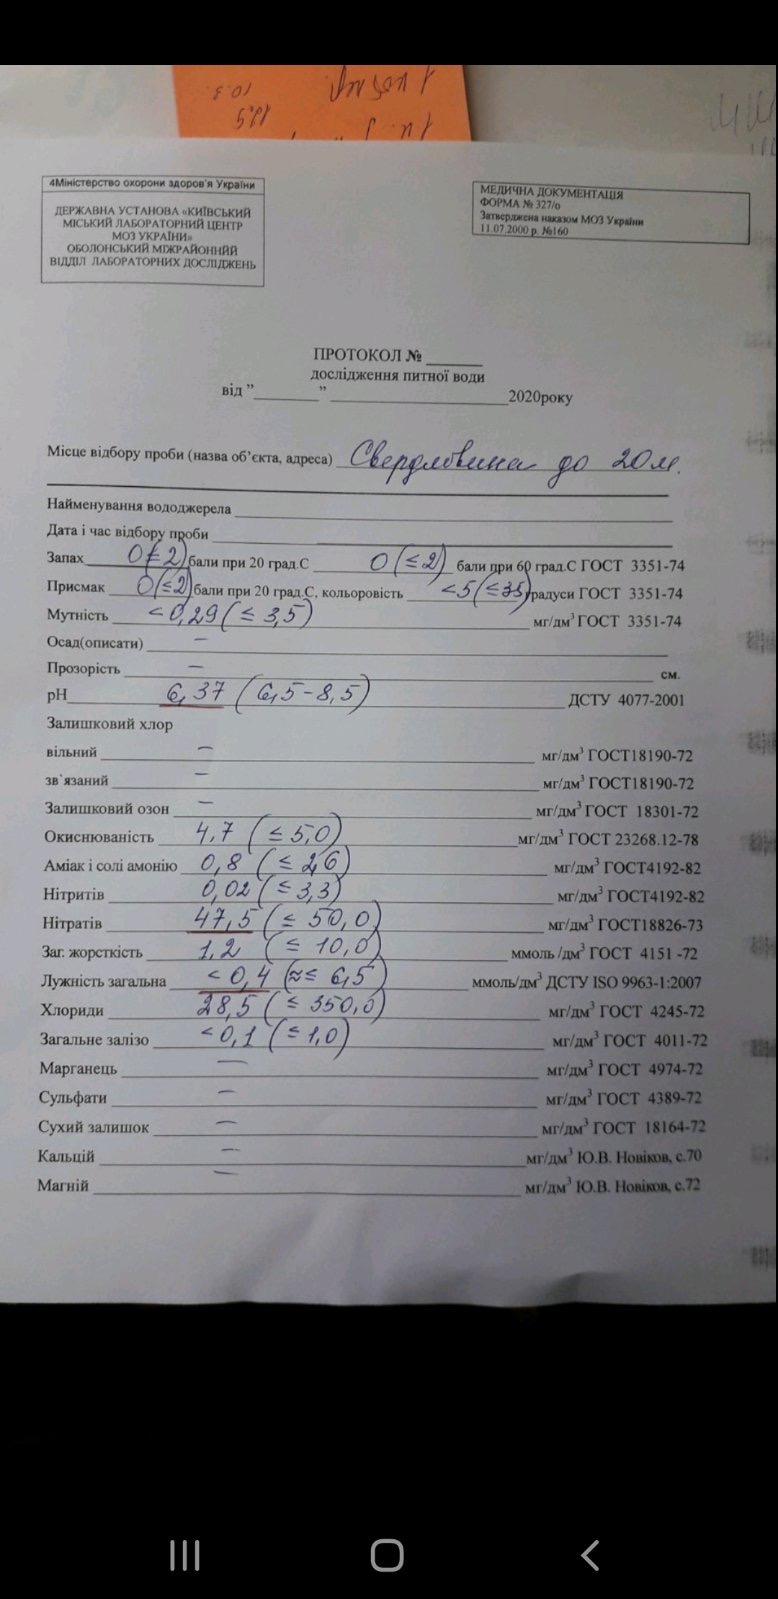 1 н. J
12,5
10.3.
4Міністерство охорони здоров'я України
ДЕРЖАВНА УСТАНОВА «КИЇВСЬКИЙ
МІСЬКИЙ ЛАБОРАТОРНИЙ ЦЕНТР
МОЗ УКРАЇНИ»
ОБОЛОНСЬКИЙ МІЖРАЙОННИЙ
ВІДДІЛ ЛАБОРАТОРНИХ ДОСЛІДЖЕНЬ
МЕДИЧНА ДОКУМЕНТАЦІЯ
ФОРМА № 327/о
Затверджена наказом МОЗ України
11.07.2000 р. №160
ПРОТОКОЛ № ______
дослідження питної води
від "________" ______________________2020року
Місце відбору проби (назва об'єкта, адреса) Свердловина до 20м.
Найменування вододжерела
Дата і час відбору проби
Запах 0(≤2) бали при 20 град.С 0(≤2) бали при 60 град.С ГОСТ 3351-74
Присмак 0(≤2) бали при 20 град.С, кольоровість <5(≤35) градуси ГОСТ 3351-74
Мутність <0,29(≤3,5) мг/дм³ ГОСТ 3351-74
Осад(описати) –
Прозорість – см.
рН 6,37 (6,5-8,5) ДСТУ 4077-2001
Залишковий хлор
вільний – мг/дм³ ГОСТ18190-72
зв`язаний – мг/дм³ ГОСТ18190-72
Залишковий озон – мг/дм³ ГОСТ 18301-72
Окиснюваність 4,7 (≤5,0) мг/дм³ ГОСТ 23268.12-78
Аміак і солі амонію 0,8 (≤2,6) мг/дм³ ГОСТ4192-82
Нітритів 0,02 (≤3,3) мг/дм³ ГОСТ4192-82
Нітратів 47,5 (≤50,0) мг/дм³ ГОСТ18826-73
Заг. жорсткість 1,2 (≤10,0) ммоль /дм³ ГОСТ 4151 -72
Лужність загальна <0,4 (≈≤6,5) ммоль/дм³ ДСТУ ISO 9963-1:2007
Хлориди 28,5 (≤350,0) мг/дм³ ГОСТ 4245-72
Загальне залізо <0,1 (≤1,0) мг/дм³ ГОСТ 4011-72
Марганець – мг/дм³ ГОСТ 4974-72
Сульфати – мг/дм³ ГОСТ 4389-72
Сухий залишок – мг/дм³ ГОСТ 18164-72
Кальцій – мг/дм³ Ю.В. Новіков, с.70
Магній – мг/дм³ Ю.В. Новіков, с.72